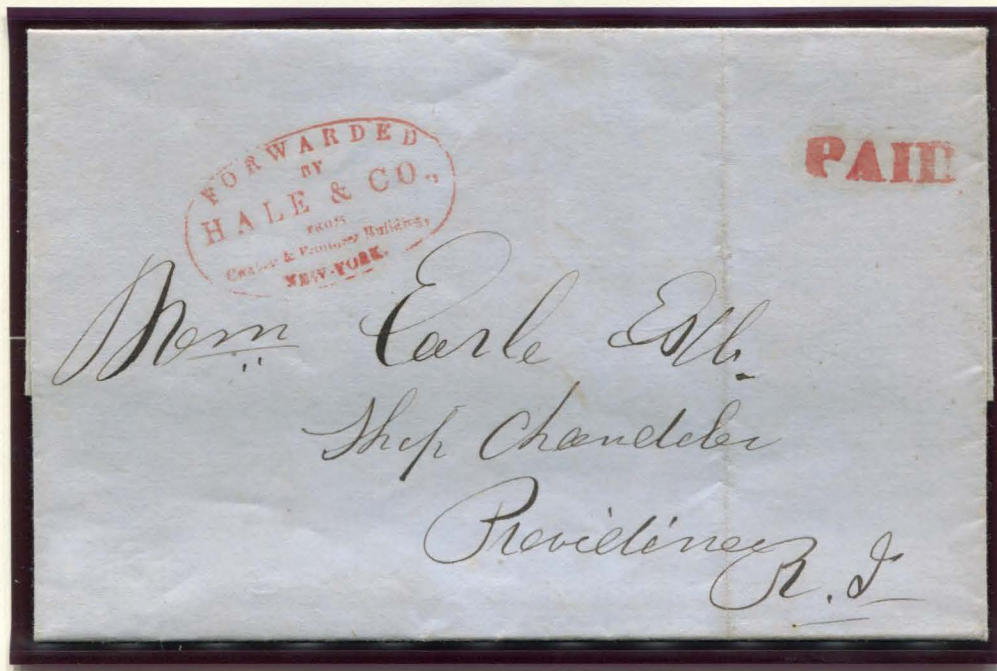 FORWARDED
BY
HALE & CO.,
FROM
& Buildings,
NEW-YORK.
PAID
Wm Earle Esq.
Ship Chandler
Providence
R. I